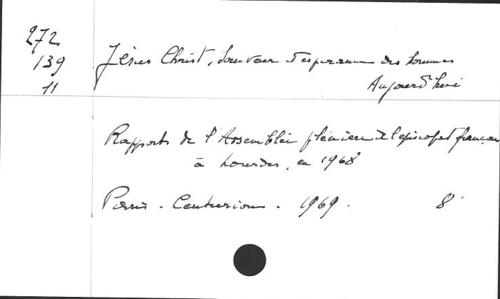 272
139
11
Jésus Christ, Sauveur Espérance des hommes
Aujourd'hui
Rapports de l'Assemblée plénière de l'épiscopat français
à Lourdes, en 1968
Paris - Centurion - 1969.
8°